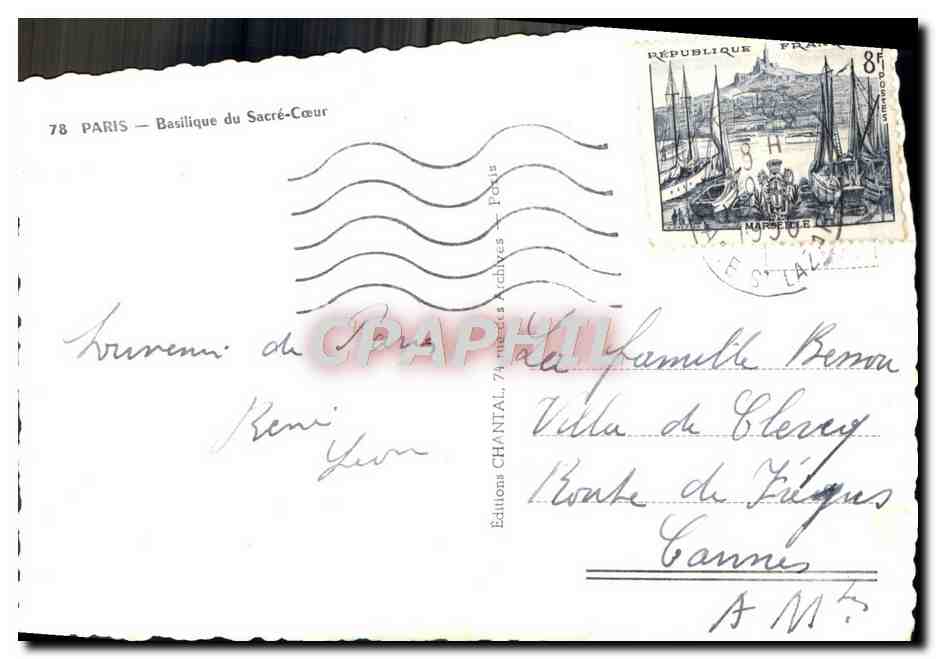 78 PARIS — Basilique du Sacré-Cœur
RÉPUBLIQUE FRAN
8F
POSTES
8 H
1956
MARSEILLE
St LAZ
Souvenir de Paris
René
Léon
Éditions CHANTAL, 74, rue des Archives — Paris
CPAPHIL
La famille Besson
Villa de Clercq
Route de Fréjus
Cannes
A Mtes